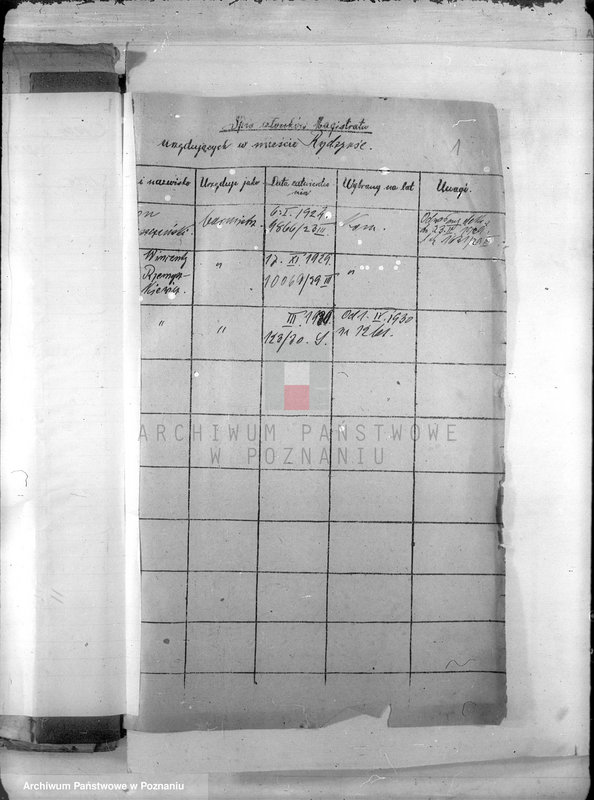 Spis członków Magistratu
urzędujących w mieście Rydzynie.
1
i nazwisko
Urzęduje jako
Data zatwierdze
nia
Wybrany na lat
Uwagi.
burmistrz
6. I. 1924.
9866/23 III
Kom.
Wincenty
"
17. XI 1929
10069/29 III
"
"
"
III. 1930.
123/30. S.
Od 1. IV. 1930
na 12 lat.
ARCHIWUM PAŃSTWOWE
W POZNANIU
Archiwum Państwowe w Poznaniu